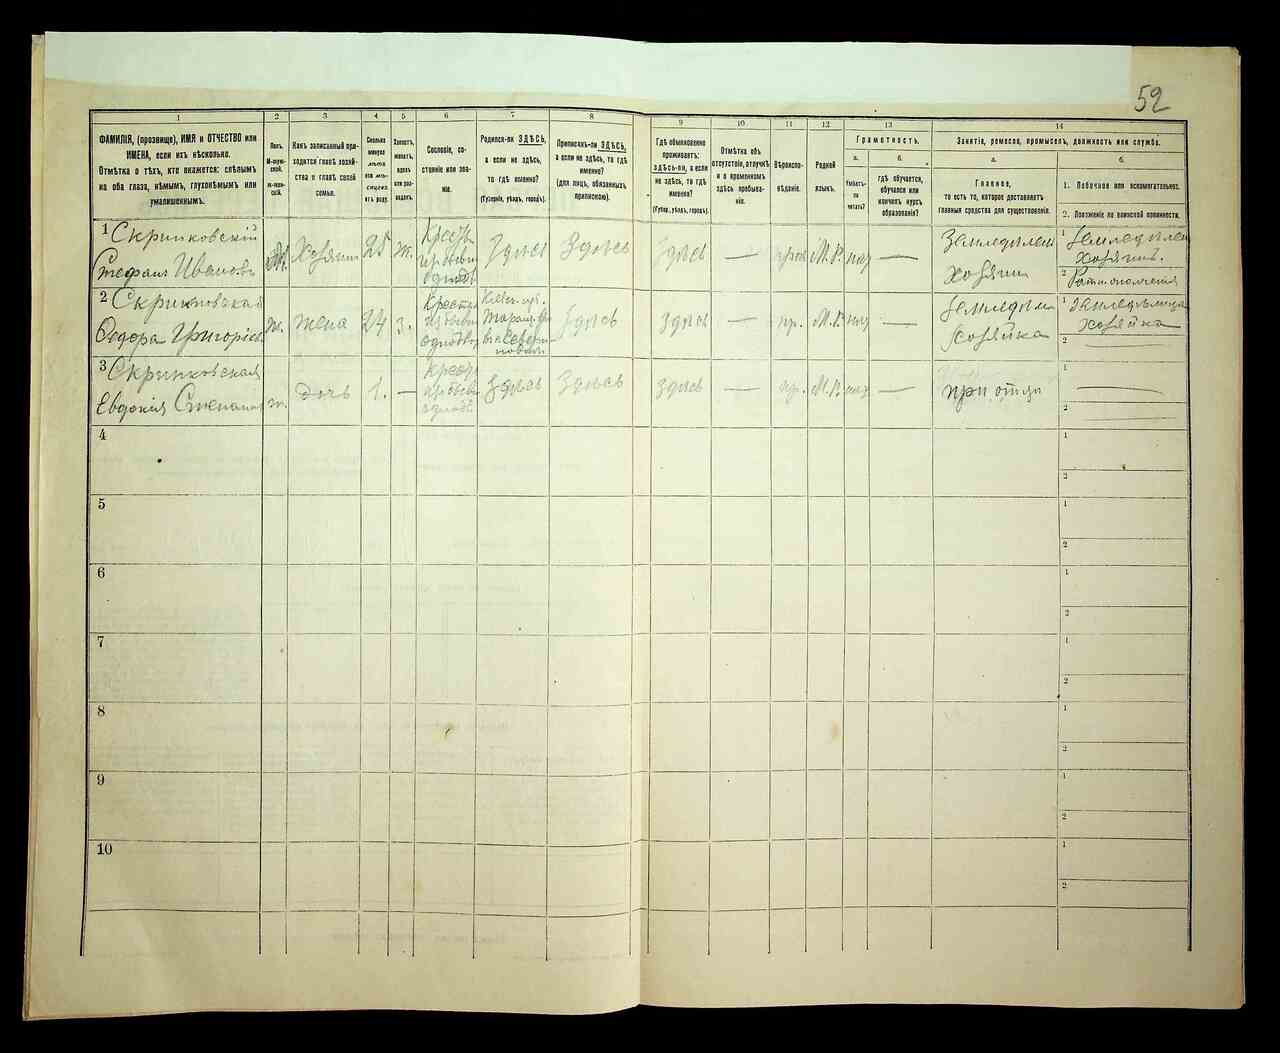 52
1
2
3
4
5
6
7
8
9
10
11
12
13
14
ФАМИЛІЯ, (прозвище), ИМЯ и ОТЧЕСТВО или
ИМЕНА, если ихъ нѣсколько.
Отмѣтка о тѣхъ, кто окажется: слѣпымъ
на оба глаза, нѣмымъ, глухонѣмымъ или
умалишеннымъ.
Полъ.
М-муж-
ской.
ж-жен-
скій.
Какъ записанный при-
ходится главѣ хозяй-
ства и главѣ своей
семьи.
Сколько
минуло
лѣтъ
или мѣ-
сяцевъ
отъ роду.
Холостъ,
женатъ,
вдовъ
или раз-
веденъ.
Сословіе, со-
стояніе или зва-
ніе.
Родился-ли ЗДѢСЬ,
а если не здѣсь,
то гдѣ именно?
(Губернія, уѣздъ, городъ).
Приписанъ-ли ЗДѢСЬ,
а если не здѣсь, то гдѣ
именно?
(для лицъ, обязанныхъ
припискою).
Гдѣ обыкновенно
проживаетъ:
ЗДѢСЬ-ЛИ, а если
не здѣсь, то гдѣ
именно?
(Губер., уѣздъ, городъ).
Отмѣтка объ
отсутствіи, отлучкѣ
и о временномъ
здѣсь пребыва-
ніи.
Вѣроиспо-
вѣданіе.
Родной
языкъ.
Грамотность.
а.
Умѣетъ-
ли
читать?
б.
гдѣ обучается,
обучался или
кончилъ курсъ
образованія?
Занятіе, ремесло, промыселъ, должность или служба.
а.
Главное,
то есть то, которое доставляетъ
главныя средства для существованія.
б.
1. Побочное или вспомогательное.
2. Положеніе по воинской повинности.
1 Скрипковскій
Стефанъ Ивановъ
М. Хозяинъ 28 ж.
Крестьян
Здѣсь Здѣсь Здѣсь — прав М.Р. нѣт —
Земледѣлец
хозяинъ
1 Земледѣлец
хозяинъ.
2 Ратн ополчения
2 Скрипковская
Федора Григоріев
ж. жена 24 з.
Крестьян
изъ бывш
однодв
Кіев. губ.
Таращ.
Здѣсь Здѣсь — пр. М.Р. нѣт —
Земледѣл
хозяйка
1 Земледѣлица
хозяйка
2
3 Скрипковская
Евдокія Степанов
ж. дочь 1. —
Крест
из бывш
однодв
Здѣсь Здѣсь Здѣсь — пр. М.Р. нѣт —
при отцѣ
1
2
4
1
2
5
1
2
6
1
2
7
1
2
8
1
2
9
1
2
10
1
2